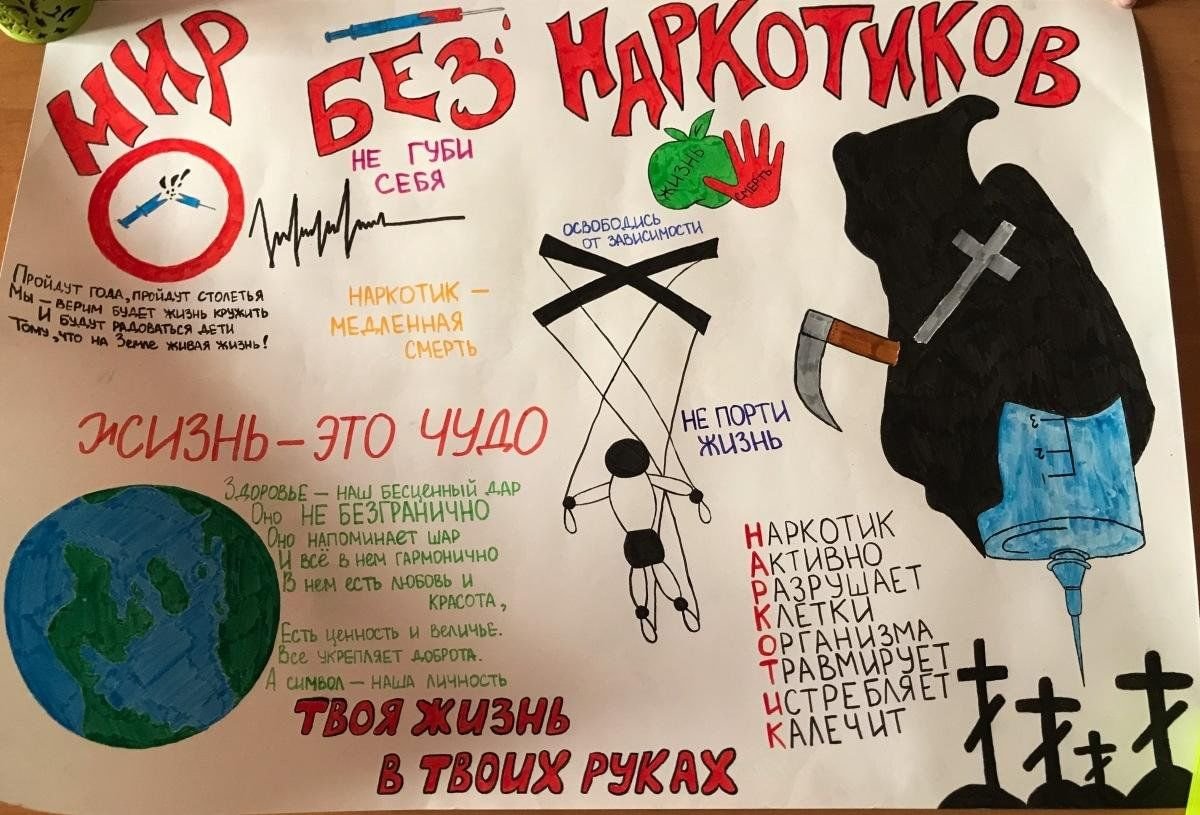 МИР БЕЗ НАРКОТИКОВ
НЕ ГУБИ
СЕБЯ
ЖИЗНЬ
СМЕРТЬ
ОСВОБОДИСЬ
ОТ ЗАВИСИМОСТИ
Пройдут года, пройдут столетья
Мы – верим будет жизнь кружить
И будут радоваться дети
Тому, что на Земле живая жизнь!
НАРКОТИК –
МЕДЛЕННАЯ
СМЕРТЬ
ЖИЗНЬ – ЭТО ЧУДО
НЕ ПОРТИ
ЖИЗНЬ
Здоровье – наш бесценный дар
Оно НЕ БЕЗГРАНИЧНО
Оно напоминает шар
И всё в нем гармонично
В нем есть любовь и
красота,
Есть ценность и величье.
Все укрепляет доброта.
А символ – наша личность
НАРКОТИК
АКТИВНО
РАЗРУШАЕТ
КЛЕТКИ
ОРГАНИЗМА
ТРАВМИРУЕТ
ИСТРЕБЛЯЕТ
КАЛЕЧИТ
3
2
1
ТВОЯ ЖИЗНЬ
В ТВОИХ РУКАХ